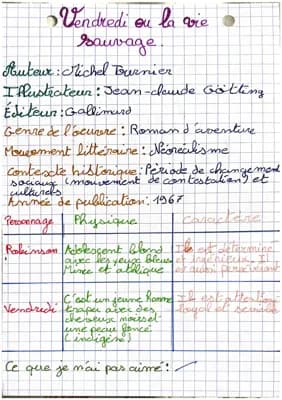 Vendredi ou la vie
sauvage.
Auteur : Michel Tournier
Illustrateur : Jean-claude Götting
Éditeur : Gallimard
Genre de l'oeuvre : Roman d'aventure
Mouvement littéraire : Néoréalisme
Contexte historique : Période de changement
sociaux (mouvement de contestation) et
culturels
Année de publication : 1967
Personnage Physique Caractère
Robinson Adolescent blond Il est déterminé
avec les yeux bleus et ingénieux. Il
Mince et athlique est aussi persévérant
Vendredi C'est un jeune homme Il est attentionné
traper avec des loyal et sensible
cheveux noirs et
une peau foncé
(indigène)
Ce que je n'ai pas aimé :